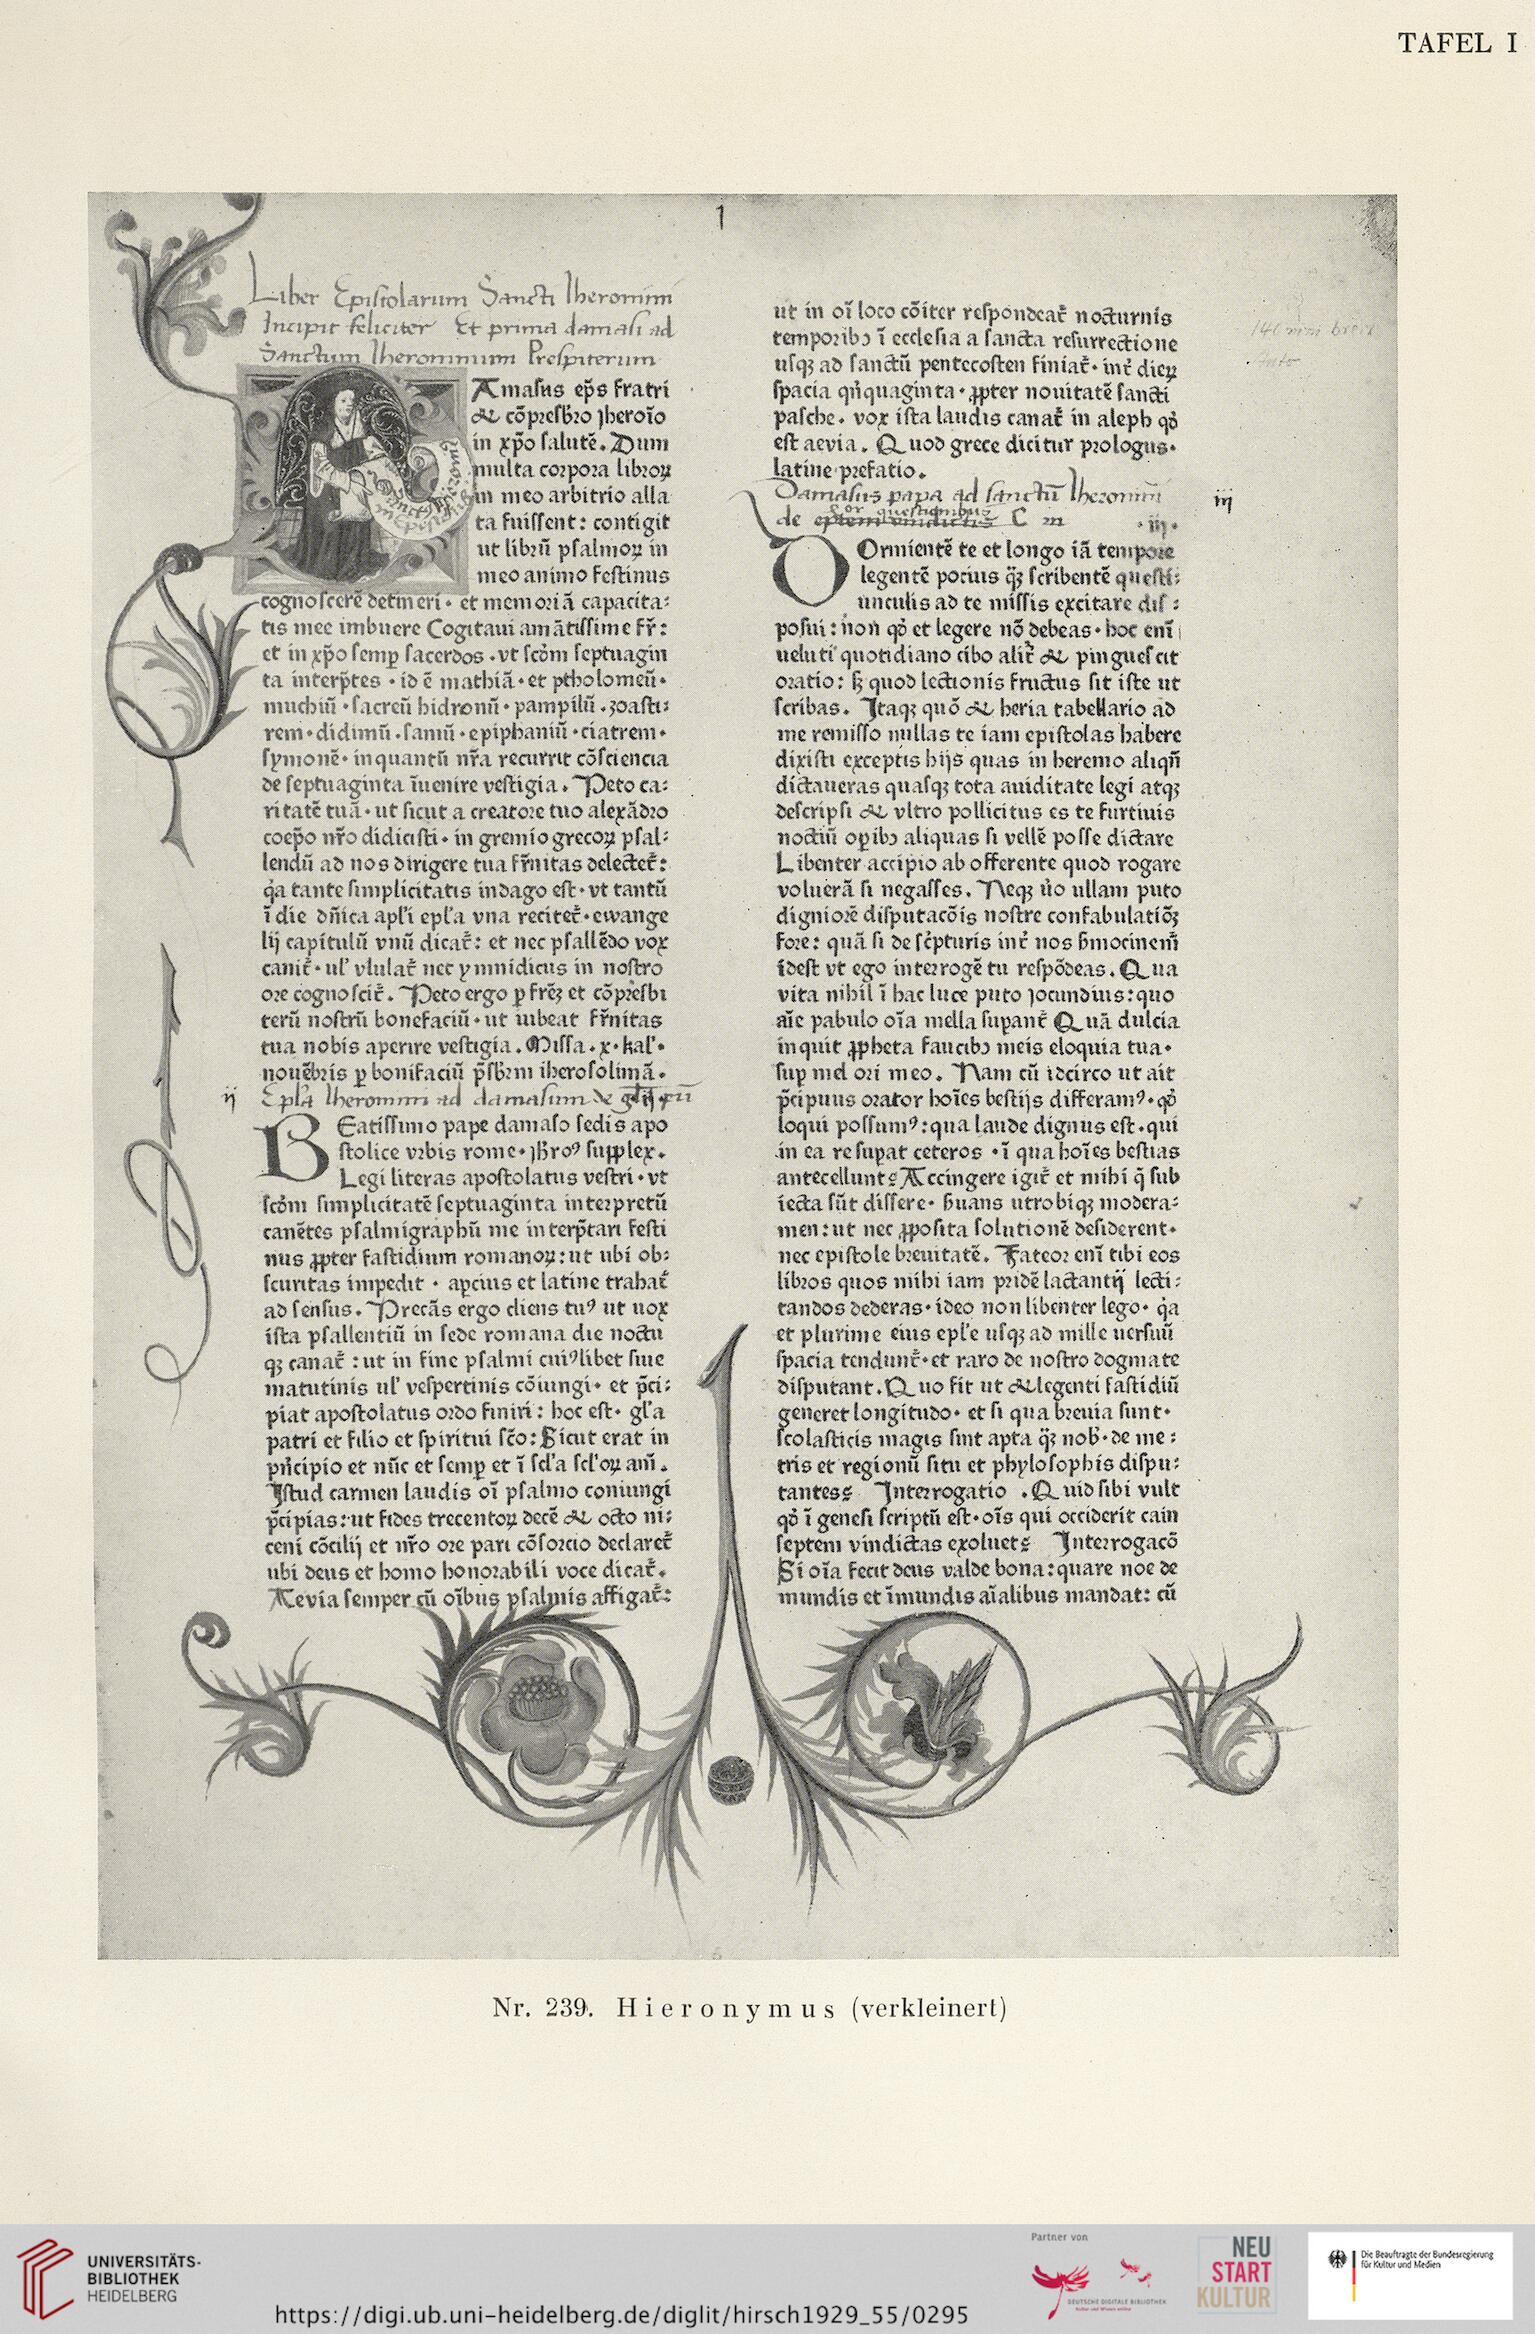 TAFEL I
1
Liber Epistolarum Sancti Iheronimi
Incipit feliciter Et prima damasi ad
Sanctum Iheronimum Prespiterum
Amasus ep̄s fratri
& cōpresbr̄o jheroīo
in xp̄o salutē. Dum
multa corpora libroꝝ
in meo arbitrio alla
ta fuissent: contigit
ut librū psalmoꝝ in
meo animo festinus
cognoscerē detineri· et memoriā capacita:
tis mee imbuere Cogitaui amātissime fr̄:
et in xp̄o semꝑ sacerdos .vt scd̄m septuagin
ta interp̄tes · id ē mathiā · et ptholomeū·
muchiū · sacreū hidronū · pampilū · zoasti:
rem · didimū · samū · epiphaniū · ciatrem·
symonē· inquantū nr̄a recurrit cōsciencia
de septuaginta īuenire vestigia. Peto ca:
ritatē tuā · ut sicut a creatore tuo alexādro
coep̄o nr̄o didicisti · in gremio grecoꝝ psal:
lendū ad nos dirigere tua fr̄nitas delectet̄:
q̇a tante simplicitatis indago est · vt tantū
ī die dn̄ica apl'i epl'a vna recitet̄ · ewange
lij capitulū vnū dicat̄: et nec psallēdo vox
canit̄ · ul' vlulat̄ nec ymnidicus in nostro
ore cognoscit̄. Peto ergo ꝑ frēꝫ et cōpresbi
terū nostrū bonefaciū · ut iubeat fr̄nitas
tua nobis aperire vestigia. Missa · x · kal'·
nouēbris ꝑ bonifaciū p̄sbr̄m iherosolimā.
ij Epl'a Iheronimi ad damasum de
BEatissimo pape damaso sedis apo
stolice vrbis rome · jhr̄oꝰ supplex.
Legi literas apostolatus vestri · vt
scd̄m simplicitatē septuaginta interpretū
canētes psalmigraphū me interp̄tari festi
nus ꝓpter fastidium romanoꝝ: ut ubi ob:
scuritas impedit · apcius et latine trahat̄
ad sensus. Precās ergo cliens tuꝰ ut uox
ista psallentiū in sede romana die noctu
qꝫ canat̄ : ut in fine psalmi cuiꝰlibet siue
matutinis ul' vespertinis cōiungi· et p̄ci:
piat apostolatus ordo finiri : hoc est· gl'a
patri et filio et spiritui sc̄o: Sicut erat in
pn̄cipio et nūc et semꝑ et ī scl'a scl'oꝝ am̄.
Istud carmen laudis oī psalmo coniungi
p̄cipias: ut fides trecentoꝝ decē & octo ni:
ceni cōcilij et nr̄o ore pari cōsorcio declaret̄
ubi deus et homo honorabili voce dicat̄.
Aevia semper cū oībus psalmis affigat̄:
ut in oī loco cōiter respondeat̄ nocturnis
temporibꝫ ī ecclesia a sancta resurrectione
usqꝫ ad sanctū pentecosten finiat̄· int̄ dieꝝ
spacia qn̄quaginta · ꝓpter nouitatē sancti
pasche. vox ista laudis canat̄ in aleph qd̄
est aevia. Quod grece dicitur prologus·
latine prefatio.
Damasus papa ad sanctū Iheronimū iij
de questionibus
· iij ·
DOrmientē te et longo iā tempore
legentē pocius qꝫ scribentē questi:
unculis ad te missis excitare dis :
posui : non qd̄ et legere nō debeas · hoc enī
ueluti quotidiano cibo alit̄ & pinguescit
oratio: sꝫ quod lectionis fructus sit iste ut
scribas. Itaqꝫ quō & heria tabellario ad
me remisso nullas te iam epistolas habere
dixisti exceptis hijs quas in heremo aliqn̄
dictaueras quasqꝫ tota auiditate legi atqꝫ
descripsi & vltro pollicitus es te furtiuis
noctiū oꝑibꝫ aliquas si vellē posse dictare
Libenter accipio ab offerente quod rogare
voluerā si negasses. Neqꝫ u̇o ullam puto
digniorē disputacōis nostre confabulatiōꝫ
fore: quā si de sc̄pturis int̄ nos s̄mocinem̄
idest vt ego interrogē tu respōdeas. Qua
vita nihil ī hac luce puto jocundius: quo
aīe pabulo oīa mella suꝑant̄ Quā dulcia
inquit ꝓpheta faucibꝫ meis eloquia tua·
suꝑ mel ori meo. Nam cū idcirco ut ait
p̄cipuus orator hoīes bestijs differamꝰ· qd̄
loqui possumꝰ: qua laude dignus est · qui
in ea re suꝑat ceteros · ī qua hoīes bestias
antecellunt: Accingere igit̄ et mihi q̄ sub
iecta sūt dissere · s̄uans utrobiqꝫ modera:
men: ut nec ꝓposita solutionē desiderent·
nec epistole breuitatē. Fateor enī tibi eos
libros quos mihi iam pridē lactantij lecti:
tandos dederas · ideo non libenter lego· q̇a
et plurime eius epl'e usqꝫ ad mille uersuū
spacia tendunt̄· et raro de nostro dogmate
disputant. Quo fit ut & legenti fastidiū
generet longitudo· et si qua breuia sunt·
scolasticis magis sint apta qꝫ nob̄· de me :
tris et regionū situ et phylosophis dispu:
tantes: Interrogatio . Quid sibi vult
qd̄ ī genesi scriptū est · oīs qui occiderit cain
septem vindictas exoluet: Interrogacō
Si oīa fecit deus valde bona: quare noe de
mundis et īmundis aīalibus mandat: cū
Nr. 239. Hieronymus (verkleinert)
UNIVERSITÄTS-
BIBLIOTHEK
HEIDELBERG
https://digi.ub.uni-heidelberg.de/diglit/hirsch1929_55/0295
Partner von
DEUTSCHE DIGITALE BIBLIOTHEK
Kultur und Wissen online
NEU
START
KULTUR
Die Beauftragte der Bundesregierung
für Kultur und Medien